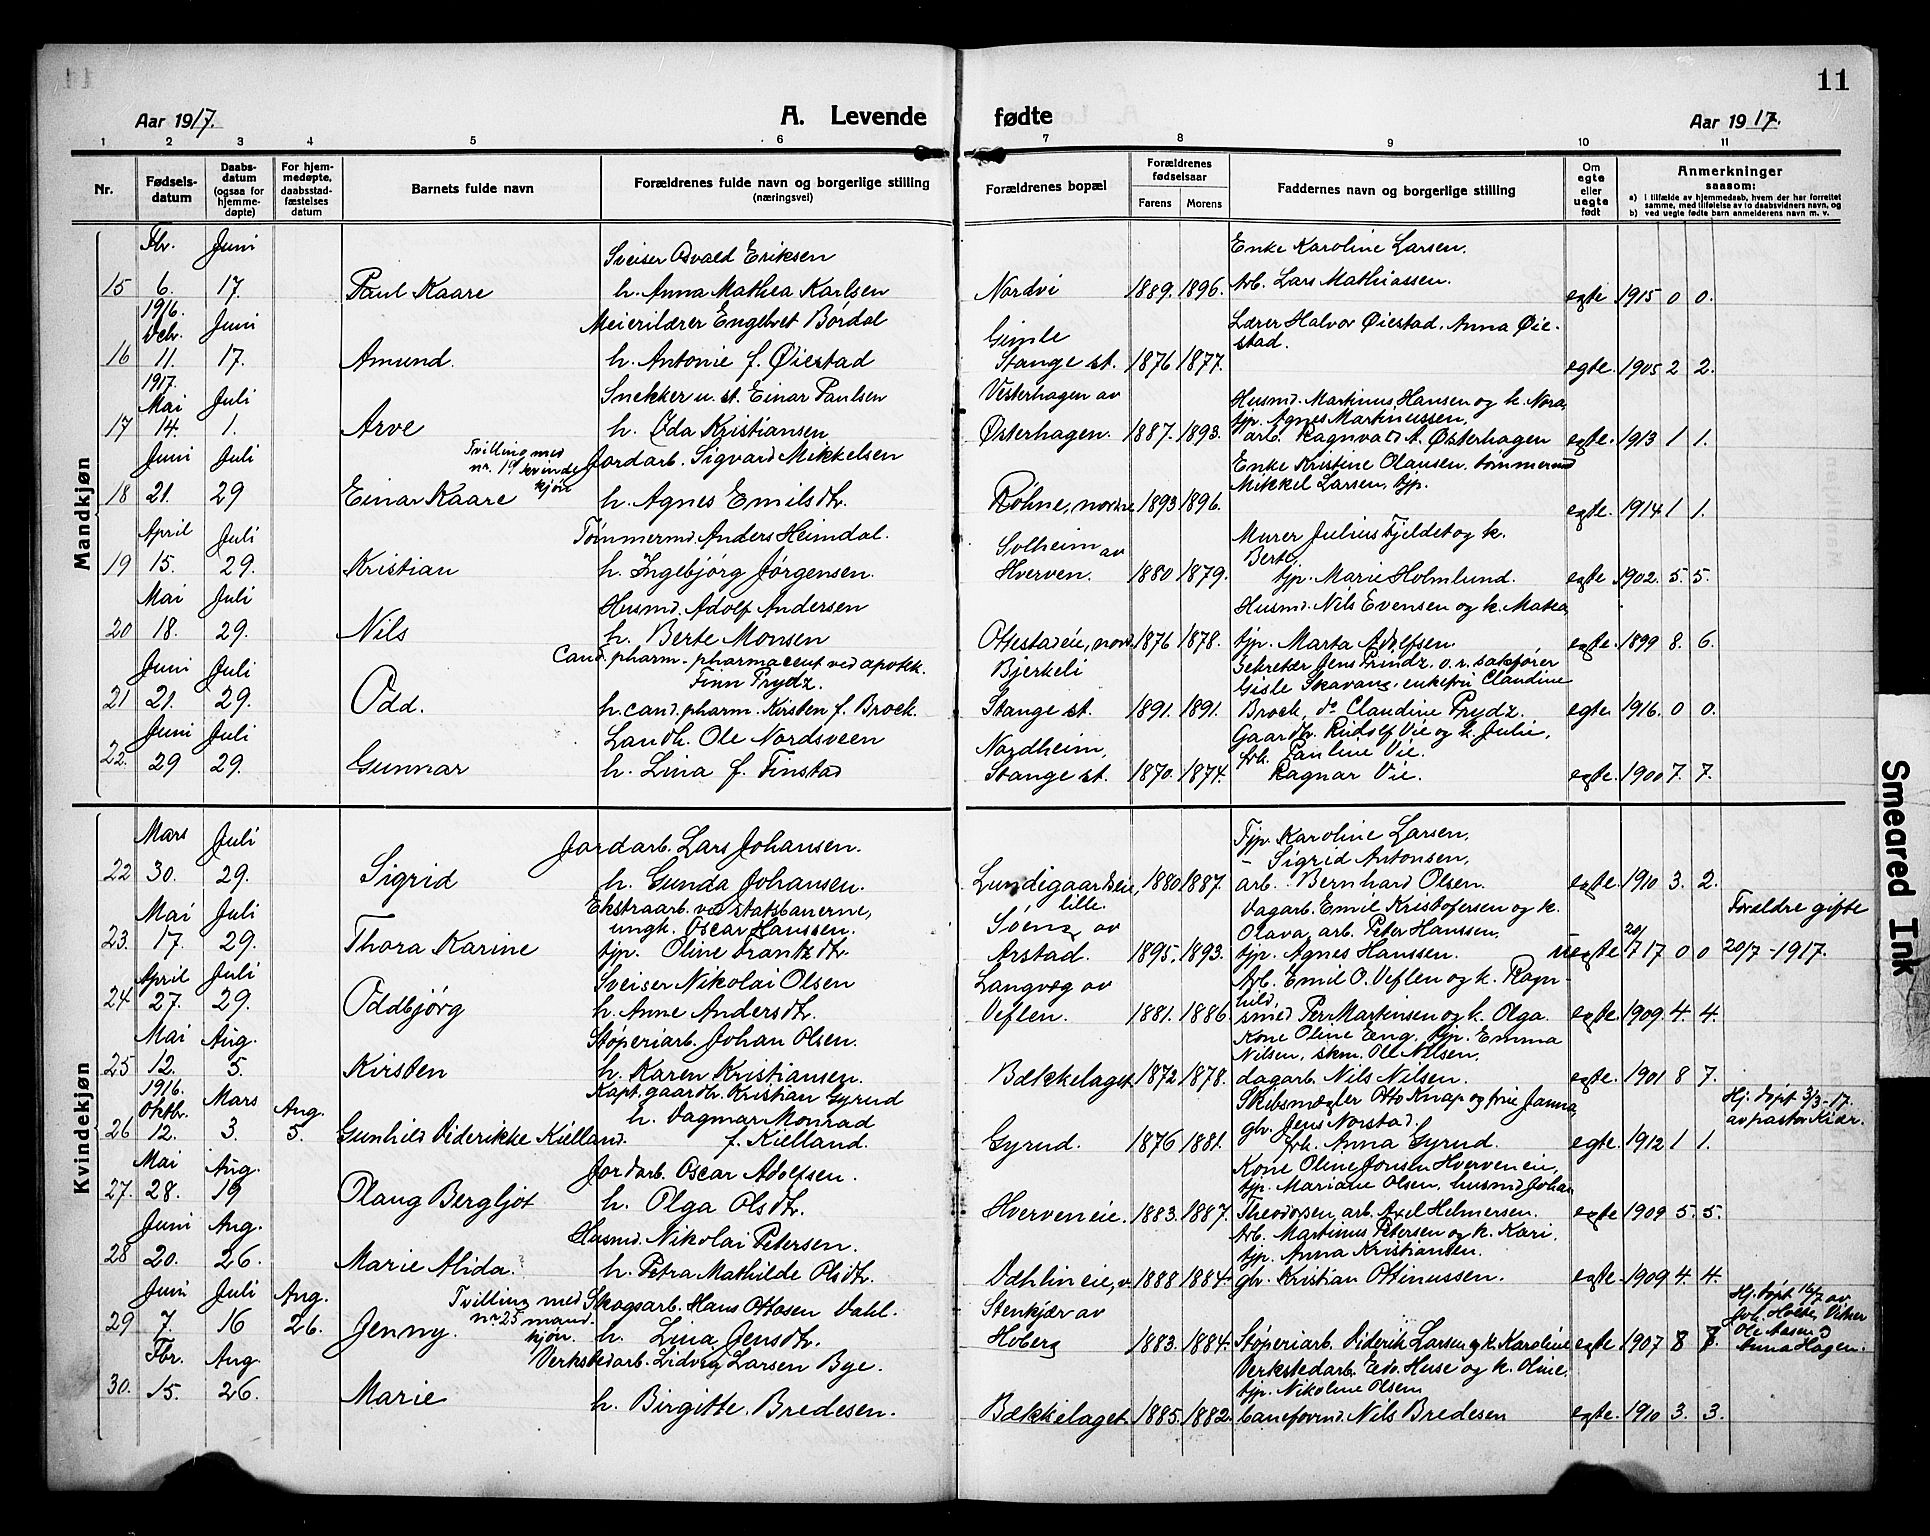 11
Aar 1917.
A. Levende fødte
Aar 1917.
1 2 3 4 5 6 7 8 9 10 11
Nr.
Fødsels-
datum
Daabs-
datum
(ogsaa for
hjemme-
døpte)
For hjem-
medøpte,
daabsstad-
fæstelses
datum
Barnets fulde navn
Forældrenes fulde navn og borgerlige stilling
(næringsvei)
Forældrenes bopæl
Forældrenes
fødselsaar
Farens Morens
Faddernes navn og borgerlige stilling
Om
egte
eller
uegte
født
Anmerkninger
saasom:
a) I tilfælde av hjemmedaab, hvem der har forrettet
samme, med tilføielse av to daabsvidners navn, og
b) ved uegte fødte barn anmelderens navn m. v.
Mandkjøn
Fbr. Juni Sveiser Osvald Eriksen Enke Karoline Larsen.
15 6. 17. Paul Kaare h. Anna Mathea Karlsen Nordvi 1889. 1896. Arb. Lars Mathiassen. egte 1915 0 0.
1916.
Decbr. Juni Meierilærer Engebret Børdal Gimle Lærer Halvor Øiestad, Anna Øie-
stad.
16 11. 17. Amund. h. Antonie f. Øiestad Stange st. 1876 1877. egte. 1905 2 2.
1917.
Mai Juli Snekker u. st. Einar Paulsen Vesterhagen av Husmd. Martinus Hansen og k. Nora,
tjp. Agnes Martinussen,
17 14. 1. Arve h. Oda Kristiansen Østerhagen. 1887. 1893. arb. Ragnvald A. Østerhagen egte. 1913 1 1.
Juni Juli Tvilling med
nr. 19 kvinde
kjøn Jordarb. Sigvard Mikkelsen Enke Kristine Olausen, tømmermd
Mikkel Larsen, tjp.
18 21. 29 Einar Kaare h. Agnes Emilsdtr. Røhne, nordre 1893 1896. egte. 1914 1 1.
April Juli Tømmermd. Anders Heimdal. Solheim av Murer Julius Fjeldet og k.
Berte,
19 15. 29. Kristian h. Ingebjørg Jørgensen. Hverven. 1880 1879. tjp. Marie Holmlund. egte 1902. 5. 5.
Mai Juli Husmd. Adolf Andersen Husmd. Nils Evensen og k. Matea,
20 18. 29. Nils h. Berte Monsen Ottestadeie, nord. 1876 1878. tjp. Marta Adolfsen. egte. 1899 8. 6.
Juni Juli Cand. pharm. pharmaceut ved apotek.
Finn Prydz. Bjerkeli Sekretær Jens Prindz. o.r. sakfører
Gisle Skavang, enkefru Claudine
21 21. 29. Odd. h. cand. pharm. Kirsten f. Brock. Stange st. 1891. 1891. Brock, do Claudine Prydz. egte. 1916. 0 0.
Juni Juli Landh. Ole Nordsveen Nordheim, Gaardbr. Rudolf Vie og k. Julie,
frk. Pauline Vie.
22. 29 29. Gunnar h. Lina f. Finstad Stange st. 1870. 1874. Ragnar Vie. egte. 1900 7. 7.
Kvindekjøn
Mars Juli Jordarb. Lars Johansen. Tjp. Karoline Larsen,
- Sigrid Antonsen,
22 30. 29. Sigrid h. Gunda Johansen. Lundigaardseie,
lille. 1880 1887. arb. Bernhard Olsen. egte. 1910 3. 2.
Mai Juli Ekstraarb. ved statsbanerne,
ungk. Oscar Hanssen. av Dagarb. Emil Kristofersen og k.
Olava, arb. Peter Hanssen, Forældre gifte
23. 17. 29. Thora Karine tjp. Oline Frantzdtr. Arstad. 1895. 1893. tjp. Agnes Hanssen. uegte 20/7 17 0 0 20/7 - 1917.
April Juli Sveiser Nikolai Olsen Langvæg av Arb. Emil O. Veflen og k. Ragn-
hild,
24 27. 29. Oddbjørg h. Anne Andersdtr. Veflen. 1881. 1886. smed Per Martinsen og k. Olga. egte. 1909. 4. 4.
Mai Aug. Støperiarb. Johan Olsen. Kone Oline Eng, tjp. Emma
Nilsen, skm. Ole Nilsen,
25 12. 5. Kirsten h. Karen Kristiansen. Bækkelaget 1872 1878. dagarb. Nils Nilsen. egte. 1901 8 7.
1916.
Oktbr. Mars Aug. Kapt. gaardbr. Kristian Gyrud
h. Dagmar Monrad Skibsmægler Otto Knap og frue Janna,
gbr. Jens Norstad, Hj. døpt 3/3-17.
av pastor Kiær.
26 12. 3. 5. Gunhild Diderikke Kielland. f. Kielland. Gyrud. 1876 1881. frk. Anna Gyrud. egte. 1912 1 1.
Mai Aug. Jordarb. Oscar Adolfsen. Kone Oline Jonsen Hverven eie,
tjp. Mariane Olsen, husmd Johan
27. 28. 19 Olaug Bergljot h. Olga Olsdtr. Hverven eie. 1883. 1887. Theodorsen, arb. Axel Helmersen. egte 1909 5. 5.
Juni Aug. Husmd. Nikolai Petersen. Arb. Martinus Petersen og k. Kari,
tjp. Anna Kristiansen.
28 20. 26. Marie Alida. h. Petra Mathilde Olsdtr. 1888 1884. gbr. Kristian Ottinussen. egte. 1909 4. 4.
Juni Juli Aug. Tvilling med
nr 25 mand-
kjøn. Skogsarb. Hans Ottosen Dahl. Stenkjær av Hj. døpt 16/7 av
Joh. Holte, Vidner
Ole Aasen og
Anna Hagen.
29 7. 16 26. Jenny. h. Lina Jensdtr. Hoberg 1883. 1884. Støperiarb. Diderik Larsen og k. Karoline egte 1907 8 7.
Fbr. Aug. Verkstedarb. Lidvig Larsen Bye. Verkstedarb. Edv. Huse og k. Oline,
tjp. Nikoline Olsen,
30. 15. 26. Marie h. Birgitte Bredesen. Bækkelaget 1885. 1882. baneformd. Nils Bredesen egte. 1910 3. 3.
Smeared Ink